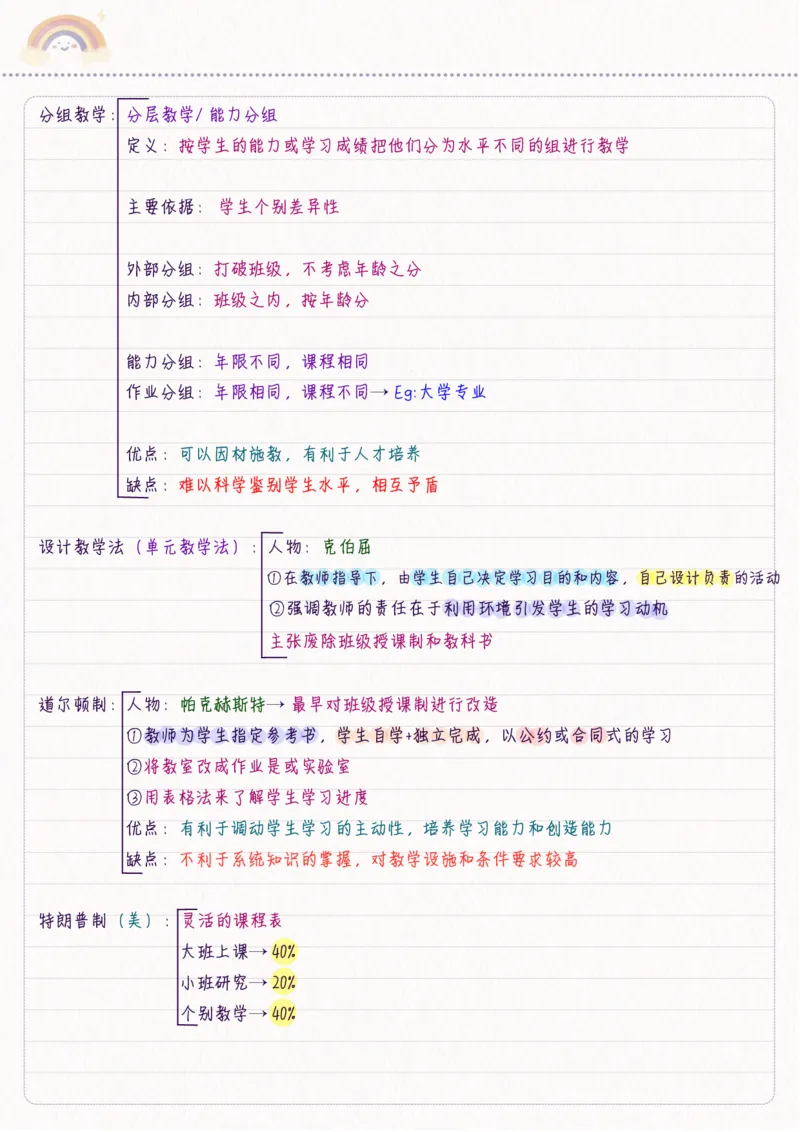 分组教学：分层教学/能力分组
定义：按学生的能力或学习成绩把他们分为水平不同的组进行教学
主要依据：学生个别差异性
外部分组：打破班级，不考虑年龄之分
内部分组：班级之内，按年龄分
能力分组：年限不同，课程相同
作业分组：年限相同，课程不同→Eg:大学专业
优点：可以因材施教，有利于人才培养
缺点：难以科学鉴别学生水平，相互矛盾
设计教学法（单元教学法）：人物：克伯屈
①在教师指导下，由学生自己决定学习目的和内容，自己设计负责的活动
②强调教师的责任在于利用环境引发学生的学习动机
主张废除班级授课制和教科书
道尔顿制：人物：帕克赫斯特→最早对班级授课制进行改造
①教师为学生指定参考书，学生自学+独立完成，以公约或合同式的学习
②将教室改成作业是或实验室
③用表格法来了解学生学习进度
优点：有利于调动学生学习的主动性，培养学习能力和创造能力
缺点：不利于系统知识的掌握，对教学设施和条件要求较高
特朗普制（美）：灵活的课程表
大班上课→40%
小班研究→20%
个别教学→40%